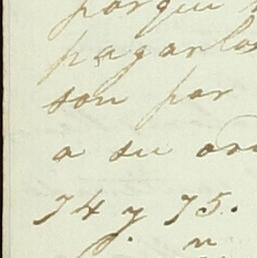 porque
pagarlos
son por
a su ord
74 y 75.